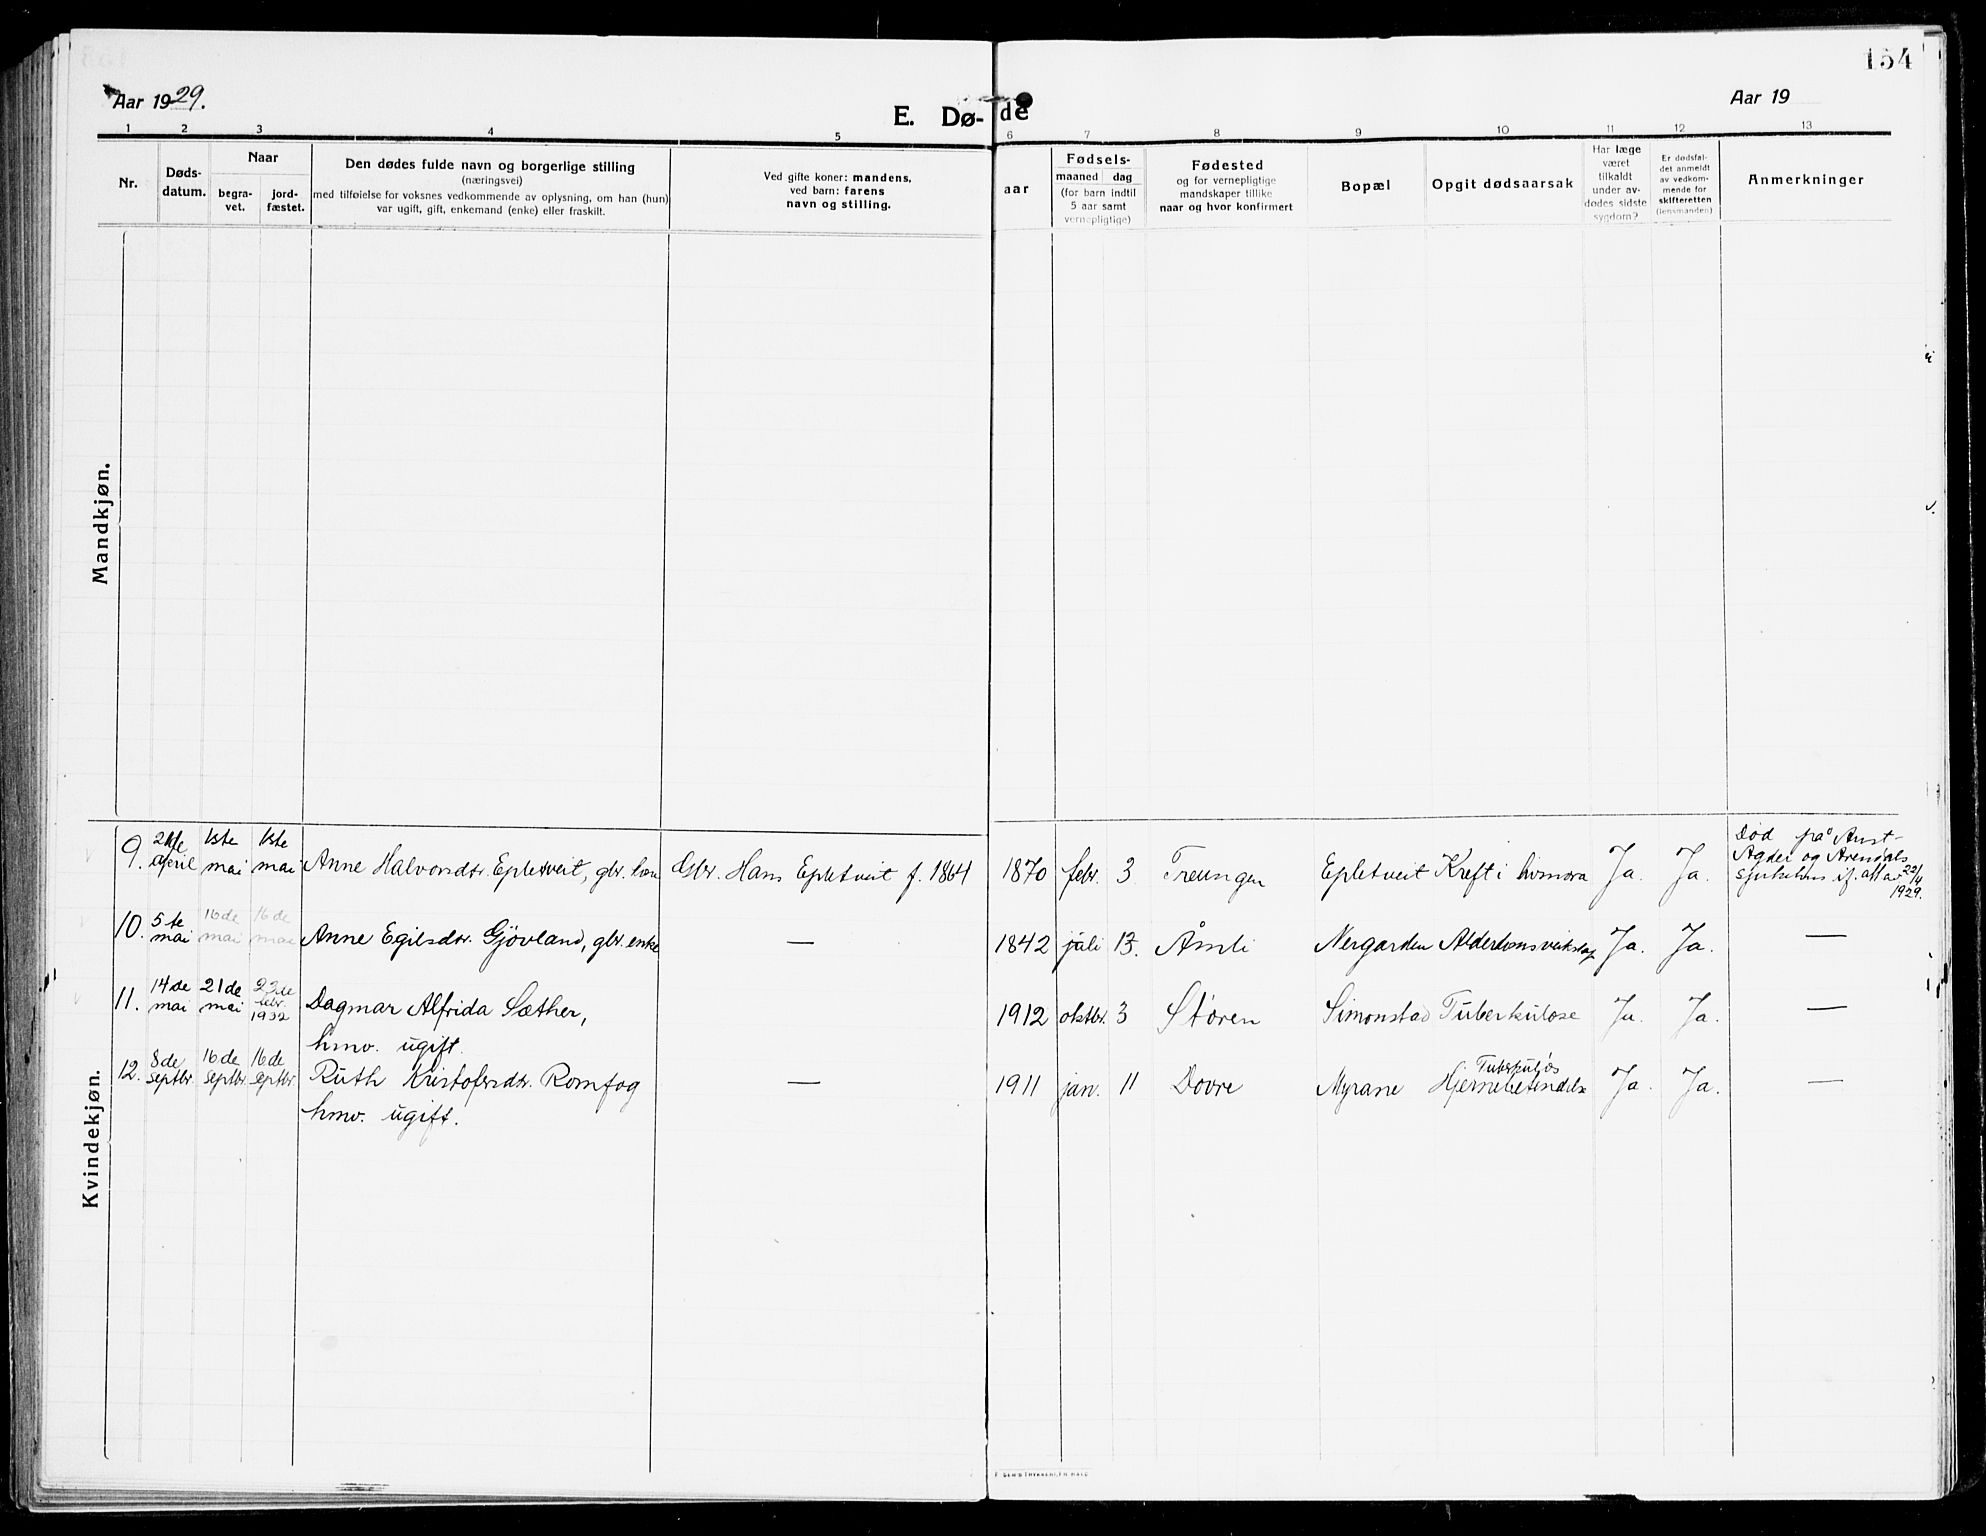 154
Aar 1929.
E. Dø-de
Aar 19
1 2 3 4 5 6 7 8 9 10 11 12 13
Nr.
Døds-
datum.
Naar
begra-
vet.
jord-
fæstet.
Den dødes fulde navn og borgerlige stilling
(næringsvei)
med tilføielse for voksnes vedkommende av oplysning, om han (hun)
var ugift, gift, enkemand (enke) eller fraskilt.
Ved gifte koner: mandens,
ved barn: farens
navn og stilling.
Fødsels-
aar
maaned dag
(for barn indtil
5 aar samt
vernepligtige)
Fødested
og for vernepligtige
mandskaper tillike
naar og hvor konfirmert
Bopæl
Opgit dødsaarsak
Har læge
været
tilkaldt
under av-
dødes sidste
sygdom?
Er dødsfal-
det anmeldt
av vedkom-
mende for
skifteretten
(lensmanden)
Anmerkninger
Mandkjøn.
Kvindekjøn.
9. april 1ste mai 1ste mai Anne Halvorsdtr. Epletveit, gbr. kone Gbr. Hans Epletveit f. 1864 1870 febr. 3 Treungen Epletveit Kreft i Ja. Ja.
Død på Aust-
Agder og Arendals
sjukehus if. att av 22/4
1929.
10. 5te mai 16de mai 16de mai Anne Egilsdtr. Gjövland, gbr. enke — 1842 juli 13. Åmli Nergarden Alderdomsveikskap Ja. Ja. —
11. 14de mai 21de mai 23de febr. 1932 Dagmar Alfrida Sæther, 1912 oktbr. 3 Støren Simonstad Tuberkulose Ja. Ja. —
hmv. ugift.
12. 8de septbr. 16de septbr. 16de septbr. Ruth Kristofersdtr. Romfog — 1911 jan. 11 Dovre Myrane Tuberkuløs Hjernebetendelse Ja. Ja. —
hmv. ugift.